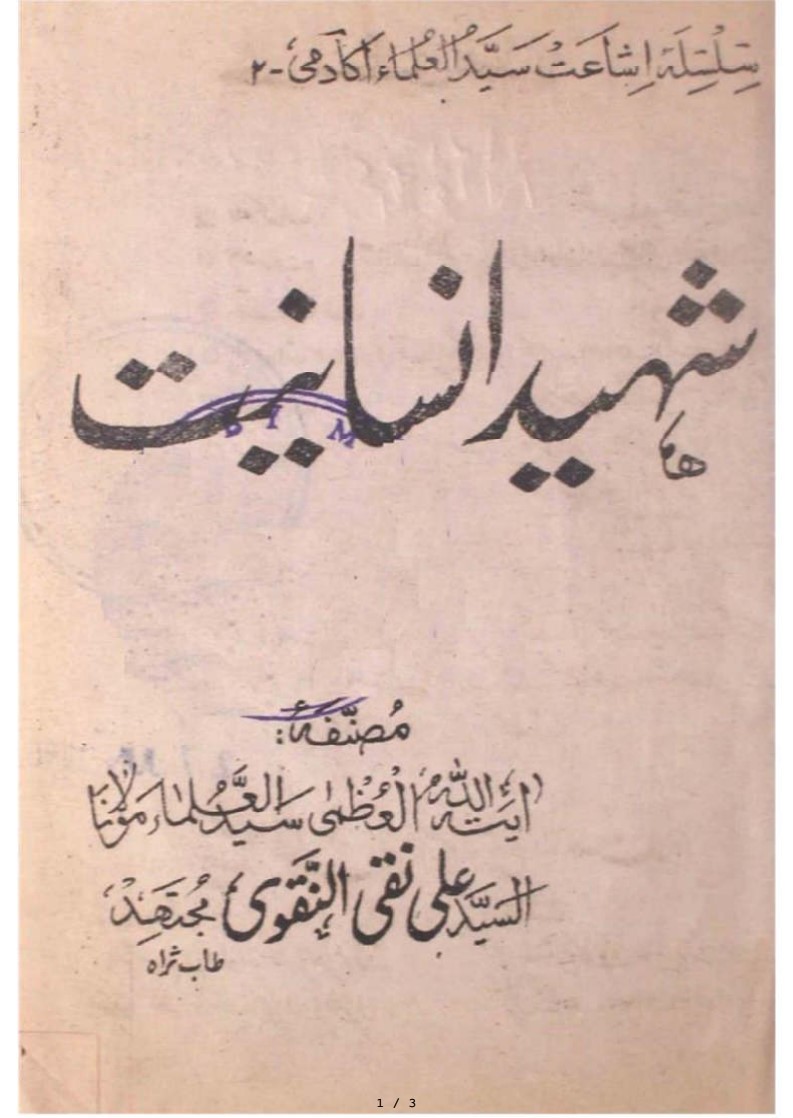 سِلْسِلَۂ اِشاعَتْ سَیَّدُ العُلماء اکادمی - ۲
شہید انسانیت
D I M
مُصَنَّفۂ:
آیتہ اللّٰہ العُظمٰی سَیدُ العُلماء مَولانا
السیَّد علی نقی النَّقوی مُجتَہِدْ
طاب ثراہ
1 / 3